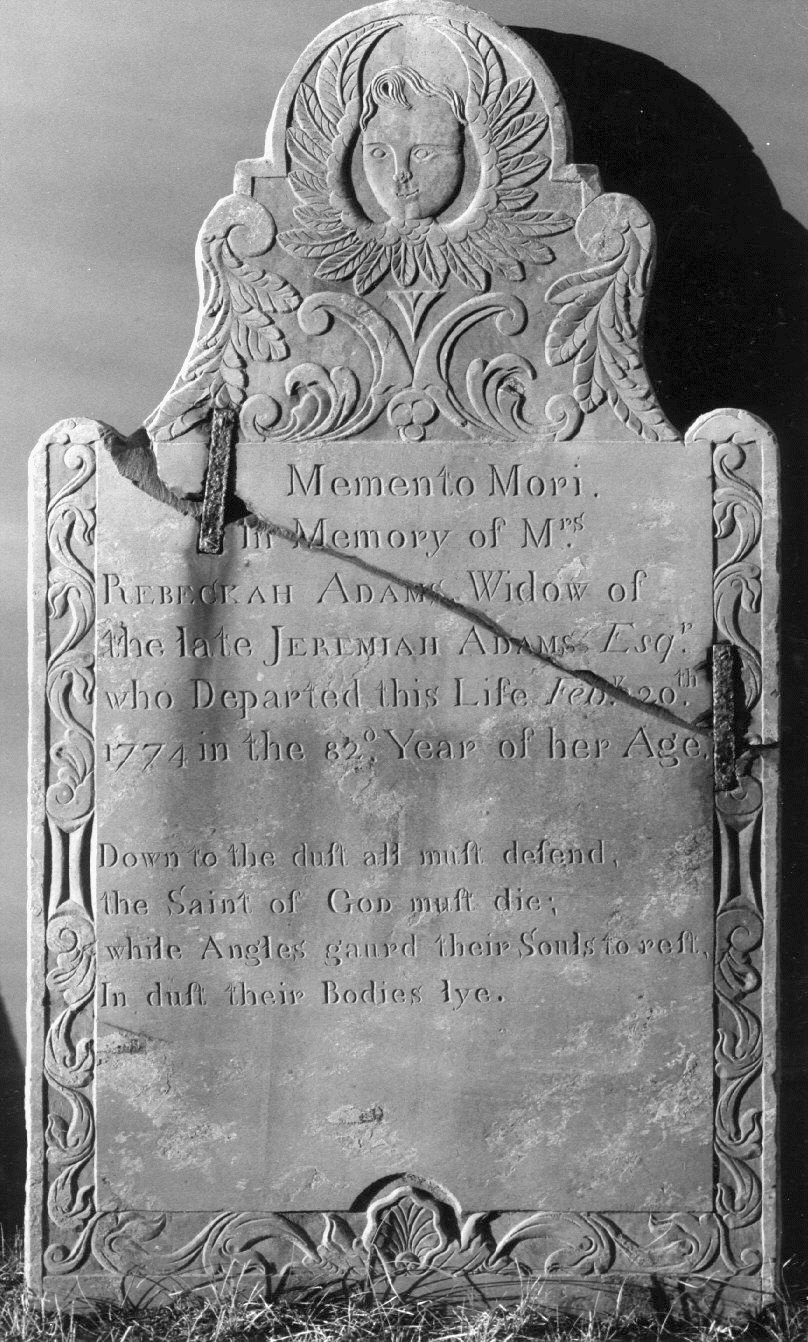 Memento Mori.
In Memory of Mrs.
REBECKAH ADAMS Widow of
the late JEREMIAH ADAMS Esqr.
who Departed this Life Feb.y 20.th
1774 in the 82.o Year of her Age.
Down to the duſt all muſt deſend,
the Saint of GOD muſt die;
while Angles gaurd their Souls to reſt,
In duſt their Bodies lye.